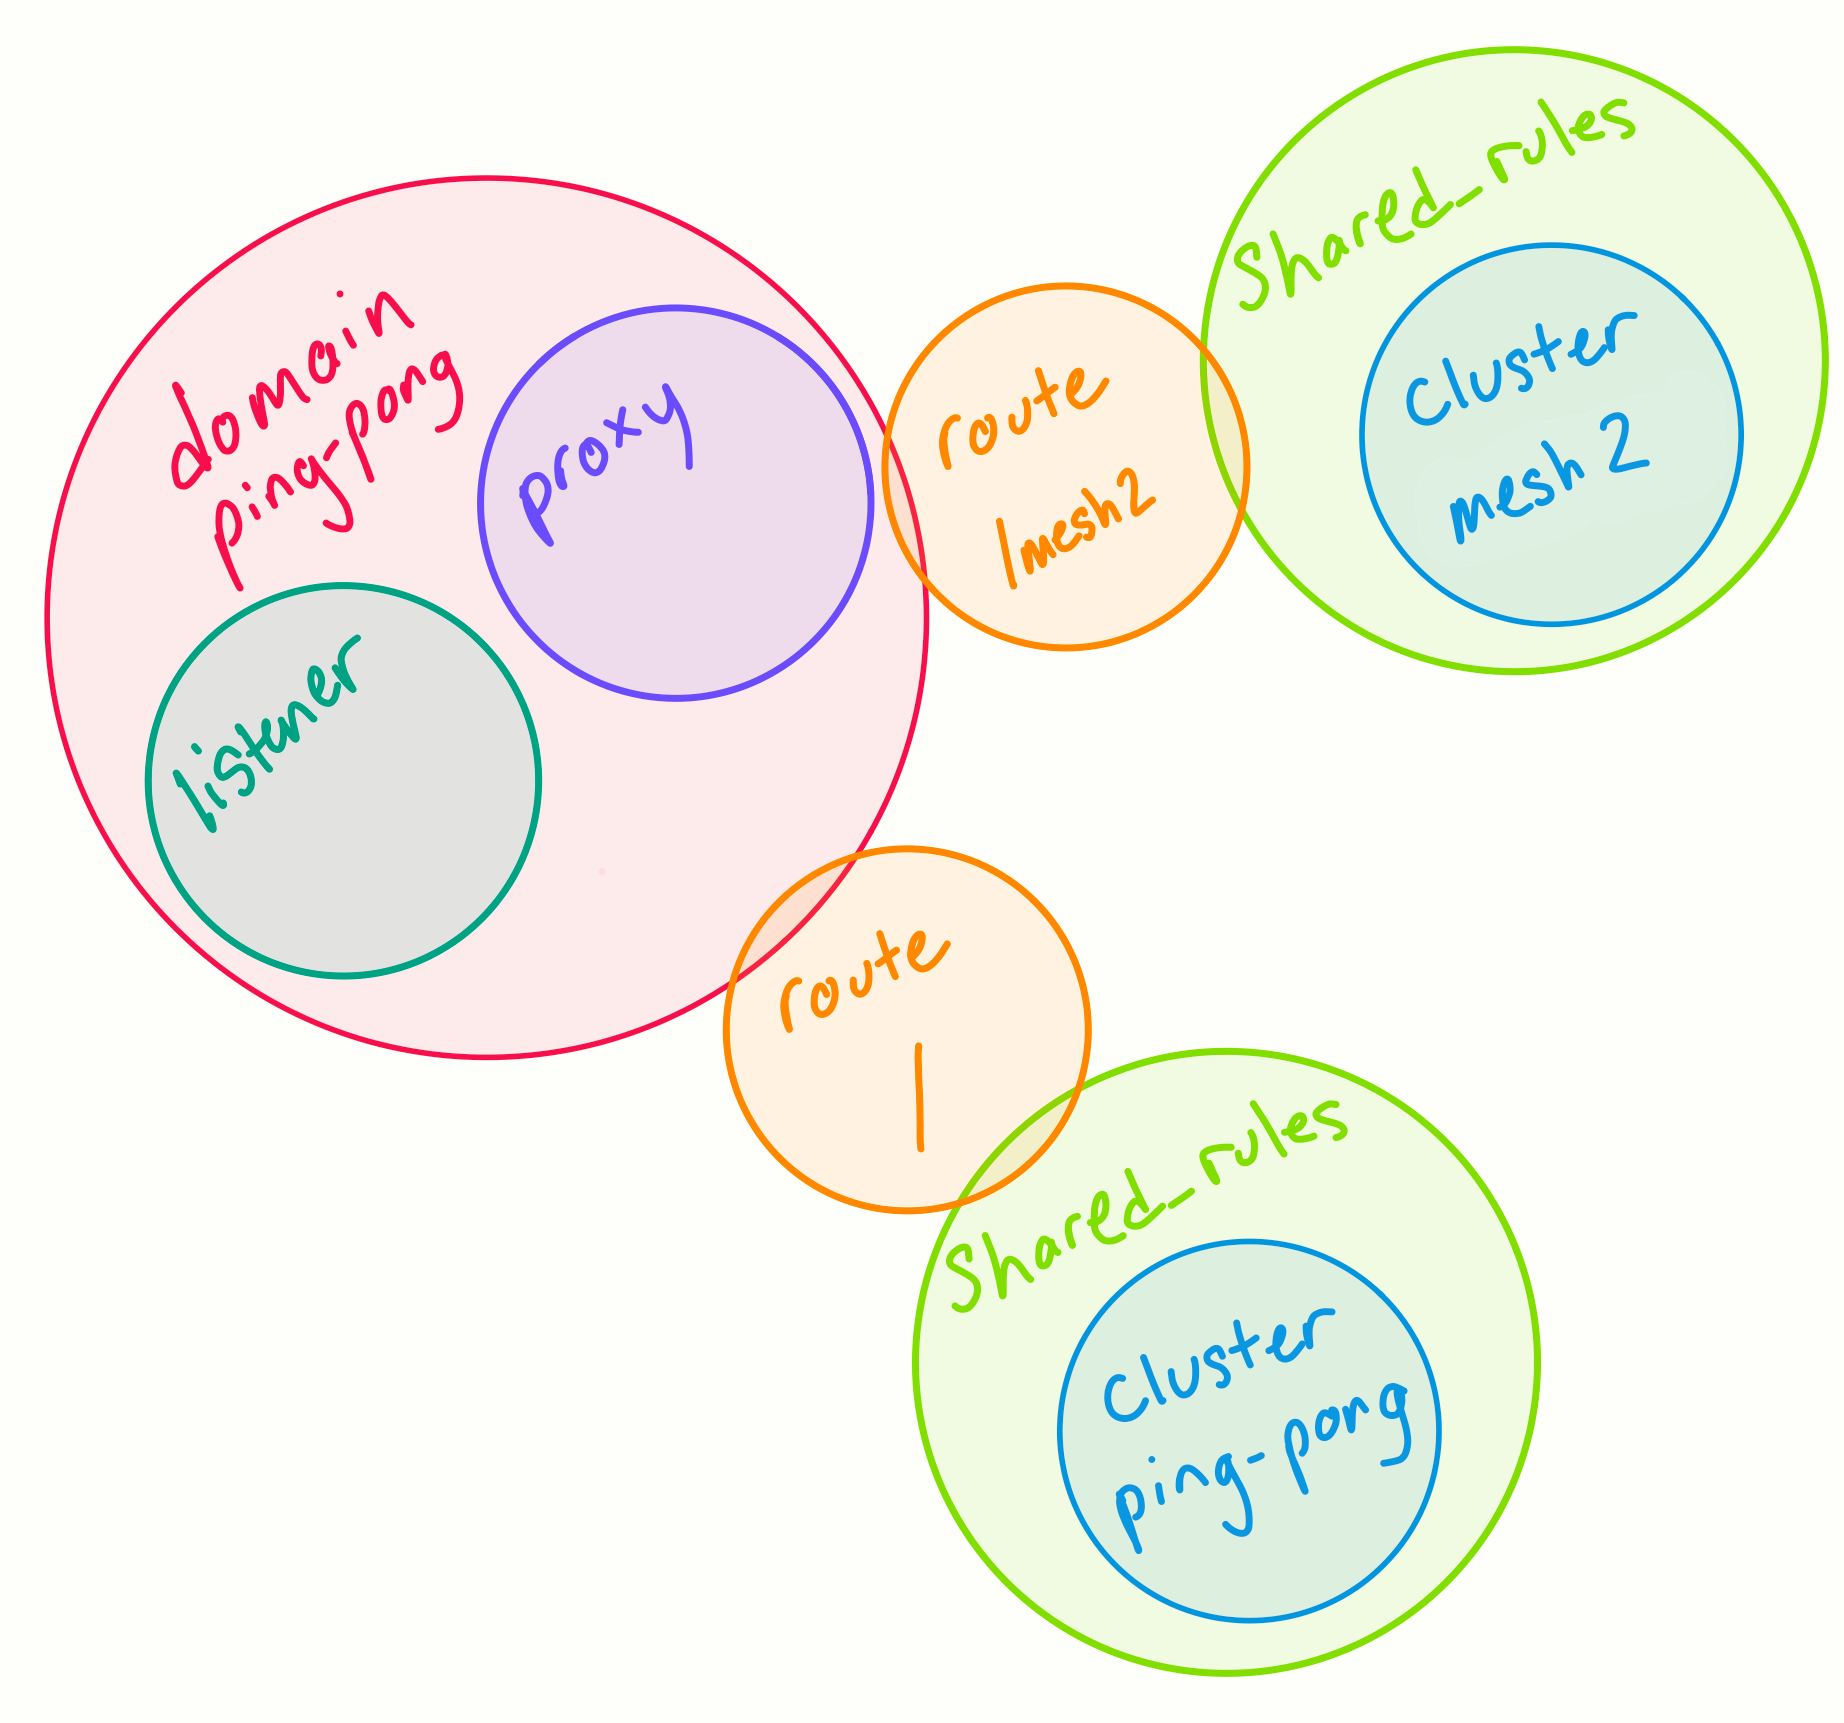 domain
ping-pong
proxy
listener
route
/mesh2
Shared_rules
Cluster
mesh 2
route
/
Shared_rules
Cluster
ping-pong